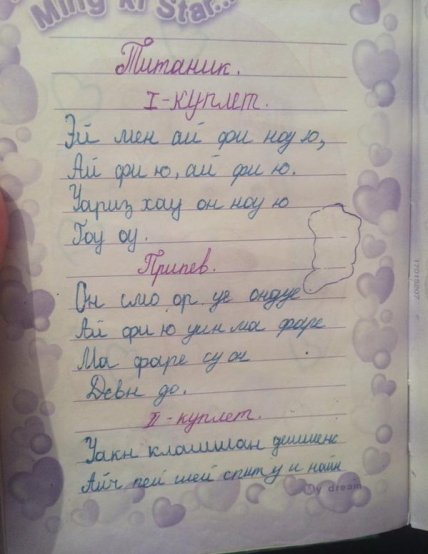 Ming ki Star...
Титаник.
I-куплет.
Эй мен ай фи ноу ю,
Ай фи ю, ай фи ю.
Уариз хау он ноу ю
Гоу оу.
Припев.
Он смо ор. уе ондуе
Ай фи ю уин ма фаре
Ма фаре су он
Девн до.
II-куплет.
Уакн клашшан
Айч пей шей спиту и найн
My dream
17019207